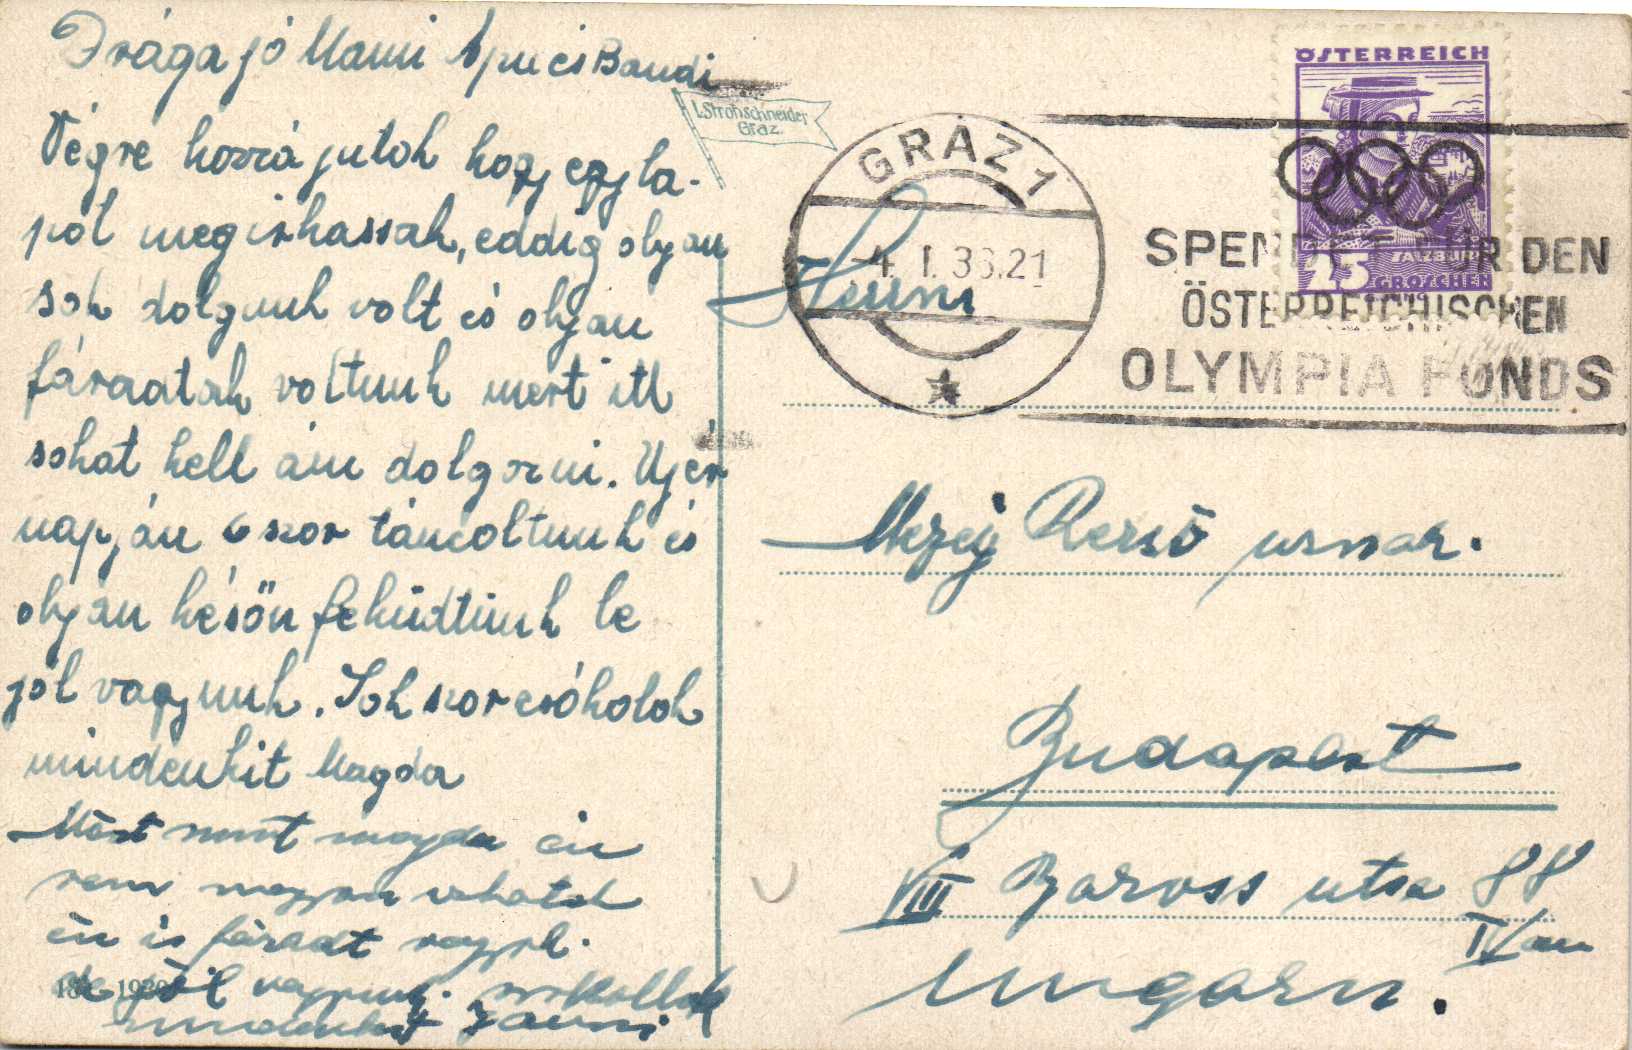 Drága jó Mami Apu és Bandi
Végre hozzá jutok hogy egy la-
pot megirhassak, eddig olyan
sok dolgunk volt és olyan
fáradtak voltunk mert itt
sokat kell ám dolgozni. Ujév
napján 6 szor táncoltunk és
olyan késön feküdtünk le
jól vagyunk. Sokszor csókolok
mindenkit Magda
Mint magda én
sem
én is fáradt vagyok.
de jól vagyunk.
mindenkit
I. Strohschneider
Graz.
GRAZ 1
-4. I. 36.21
ÖSTERREICH
SALZBURG
25 GROSCHEN
SPENDET FÜR DEN
ÖSTERREICHISCHEN
OLYMPIA FONDS
Mezey Rezső urnak.
Budapest
VIII Baross utca 88
IV em
Ungarn.